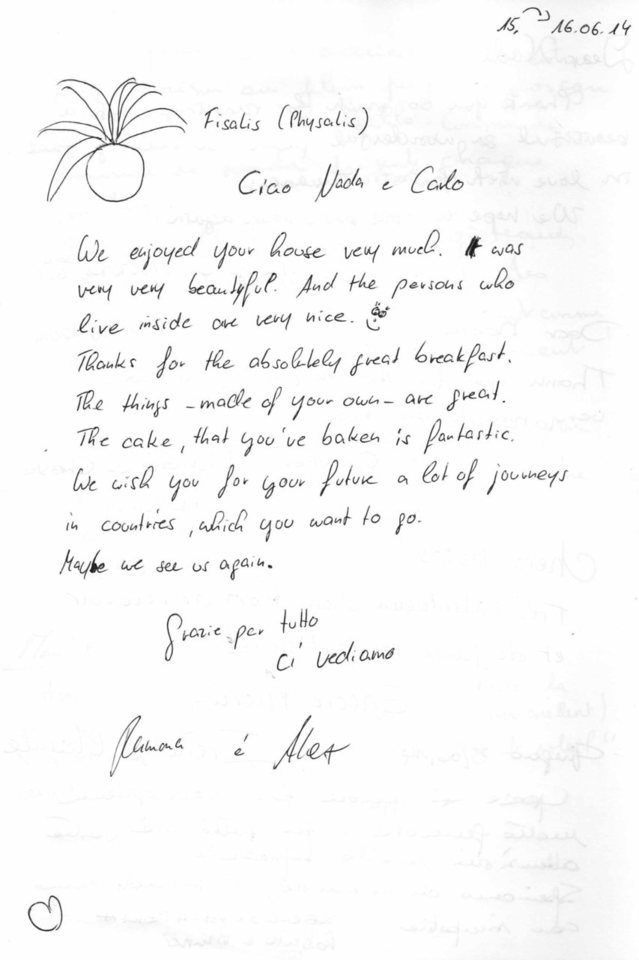 15. 16.06.14
Fisalis (Physalis)
Ciao Nada e Carlo
We enjoyed your house very much. It was
very very beautyful. And the persons who
live inside are very nice.
Thanks for the absolutely great breakfast.
The things – made of your own – are great.
The cake, that you've baken is fantastic.
We wish you for your future a lot of journeys
in countries, which you want to go.
Maybe we see us again.
Grazie per tutto
ci vediamo
Ramona é Alex